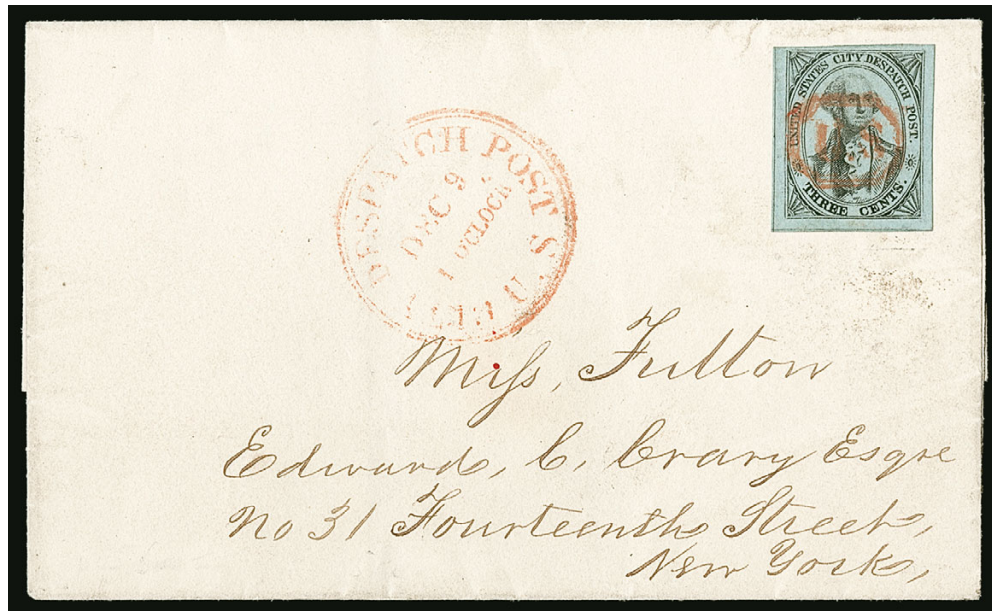 UNITED STATES CITY DESPATCH POST.
THREE CENTS.
U.S
CITY DESPATCH POST U.S
DEC 9
1 O'CLOCK
Miss, Fulton
Edward, C, Crary Esqre
No 31 Fourteenth Street,
New York,